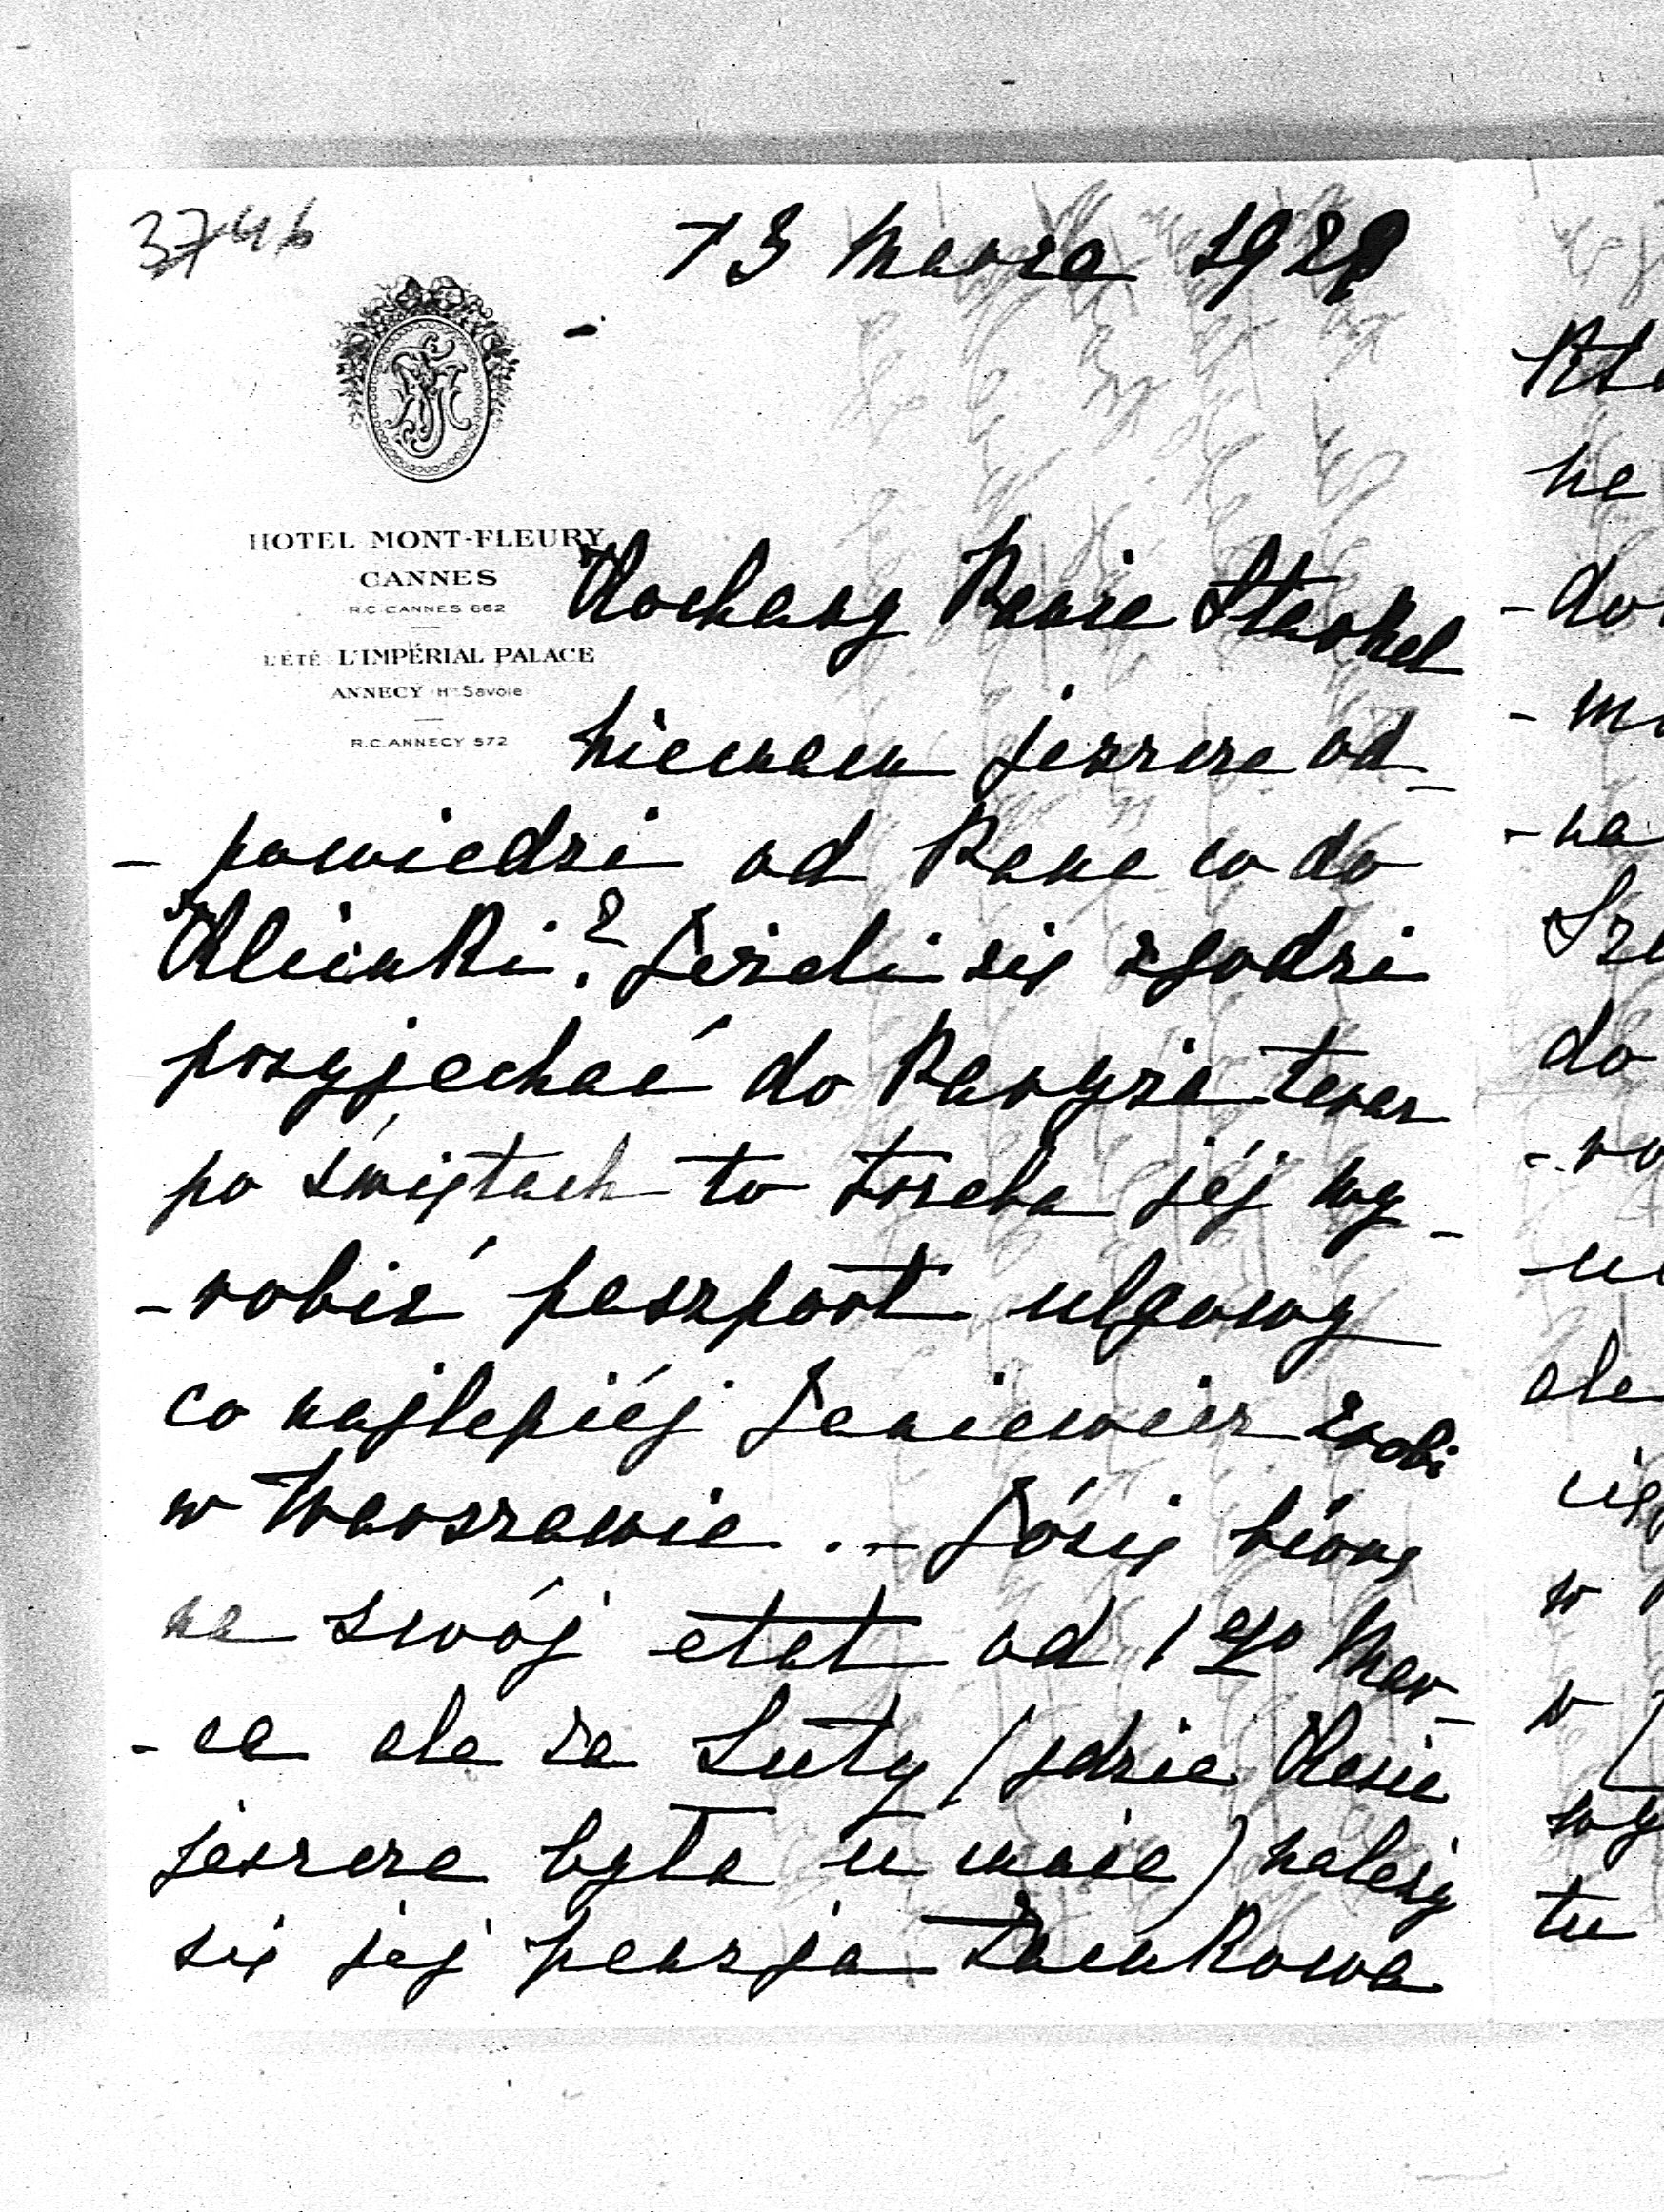 3746
13 Marca 1928
HOTEL MONT-FLEURY
CANNES
R.C. CANNES 662
L'ÉTÉ L'IMPÉRIAL PALACE
ANNECY Hte Savoie
R.C. ANNECY 572
Kochany Panie
Niemam jeszcze od-
-powiedzi od Pana co do
Klimki? Jeżeli się zgodzi
przyjechać do Paryża teraz
po świętach to trzeba jéj wy-
-robić paszport ulgowy
co najlepiéj Janiewicz zrobi
w Warszawie.- Józię biorę
na swój etat od 1ego Mar-
-ca ale za Luty (gdzie
jeszcze była u mnie) należy
się jej pensja Zamkowa
do
tu